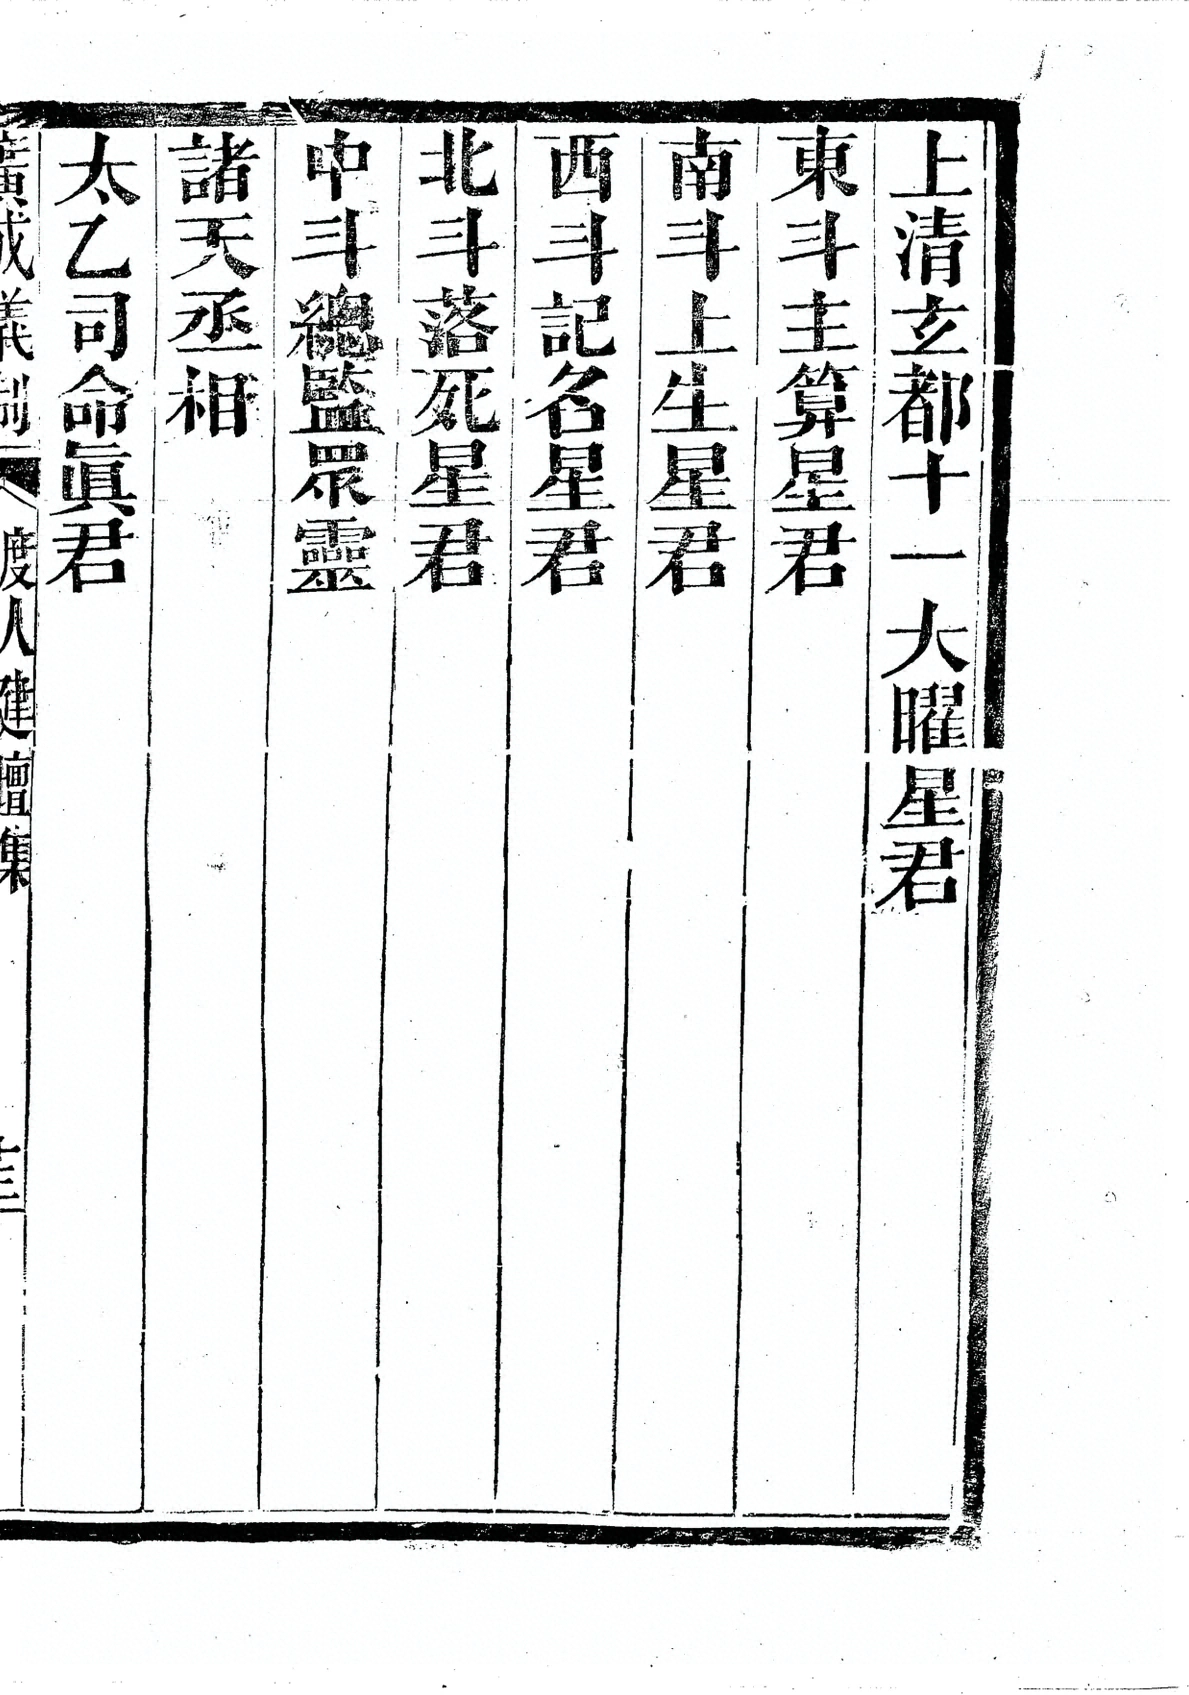 上清玄都十一大曜星君
東斗主算星君
南斗上生星君
西斗記名星君
北斗落死星君
中斗總監眾靈
諸天丞相
太乙司命眞君
廣成儀制 度人建壇集 十三